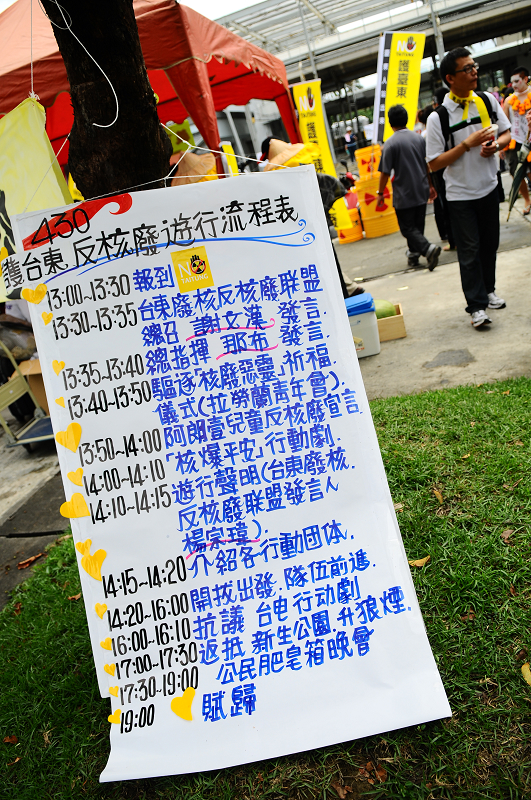 430
護台東 反核廢遊行流程表
NO
TAITUNG
13:00~13:30 報到
13:30~13:35 台東廢核反核廢联盟
總召 謝文漢 發言.
13:35~13:40 總指揮 那布 發言.
13:40~13:50 驅逐「核廢惡靈」祈福
儀式(拉勞蘭青年會).
13:50~14:00 阿朗壹兒童反核廢宣言
14:00~14:10 「核爆平安」行動劇.
14:10~14:15 遊行聲明(台東廢核.
反核廢联盟發言人
楊宗瑋).
14:15~14:20 介紹各行動団体.
14:20~16:00 開拔出發.隊伍前進.
16:00~16:10 抗議 台电行动劇
17:00~17:30 返抵 新生公園.升狼煙.
17:30~19:00 公民肥皂箱晚會
19:00 賦歸
NO
護臺東
NO
護